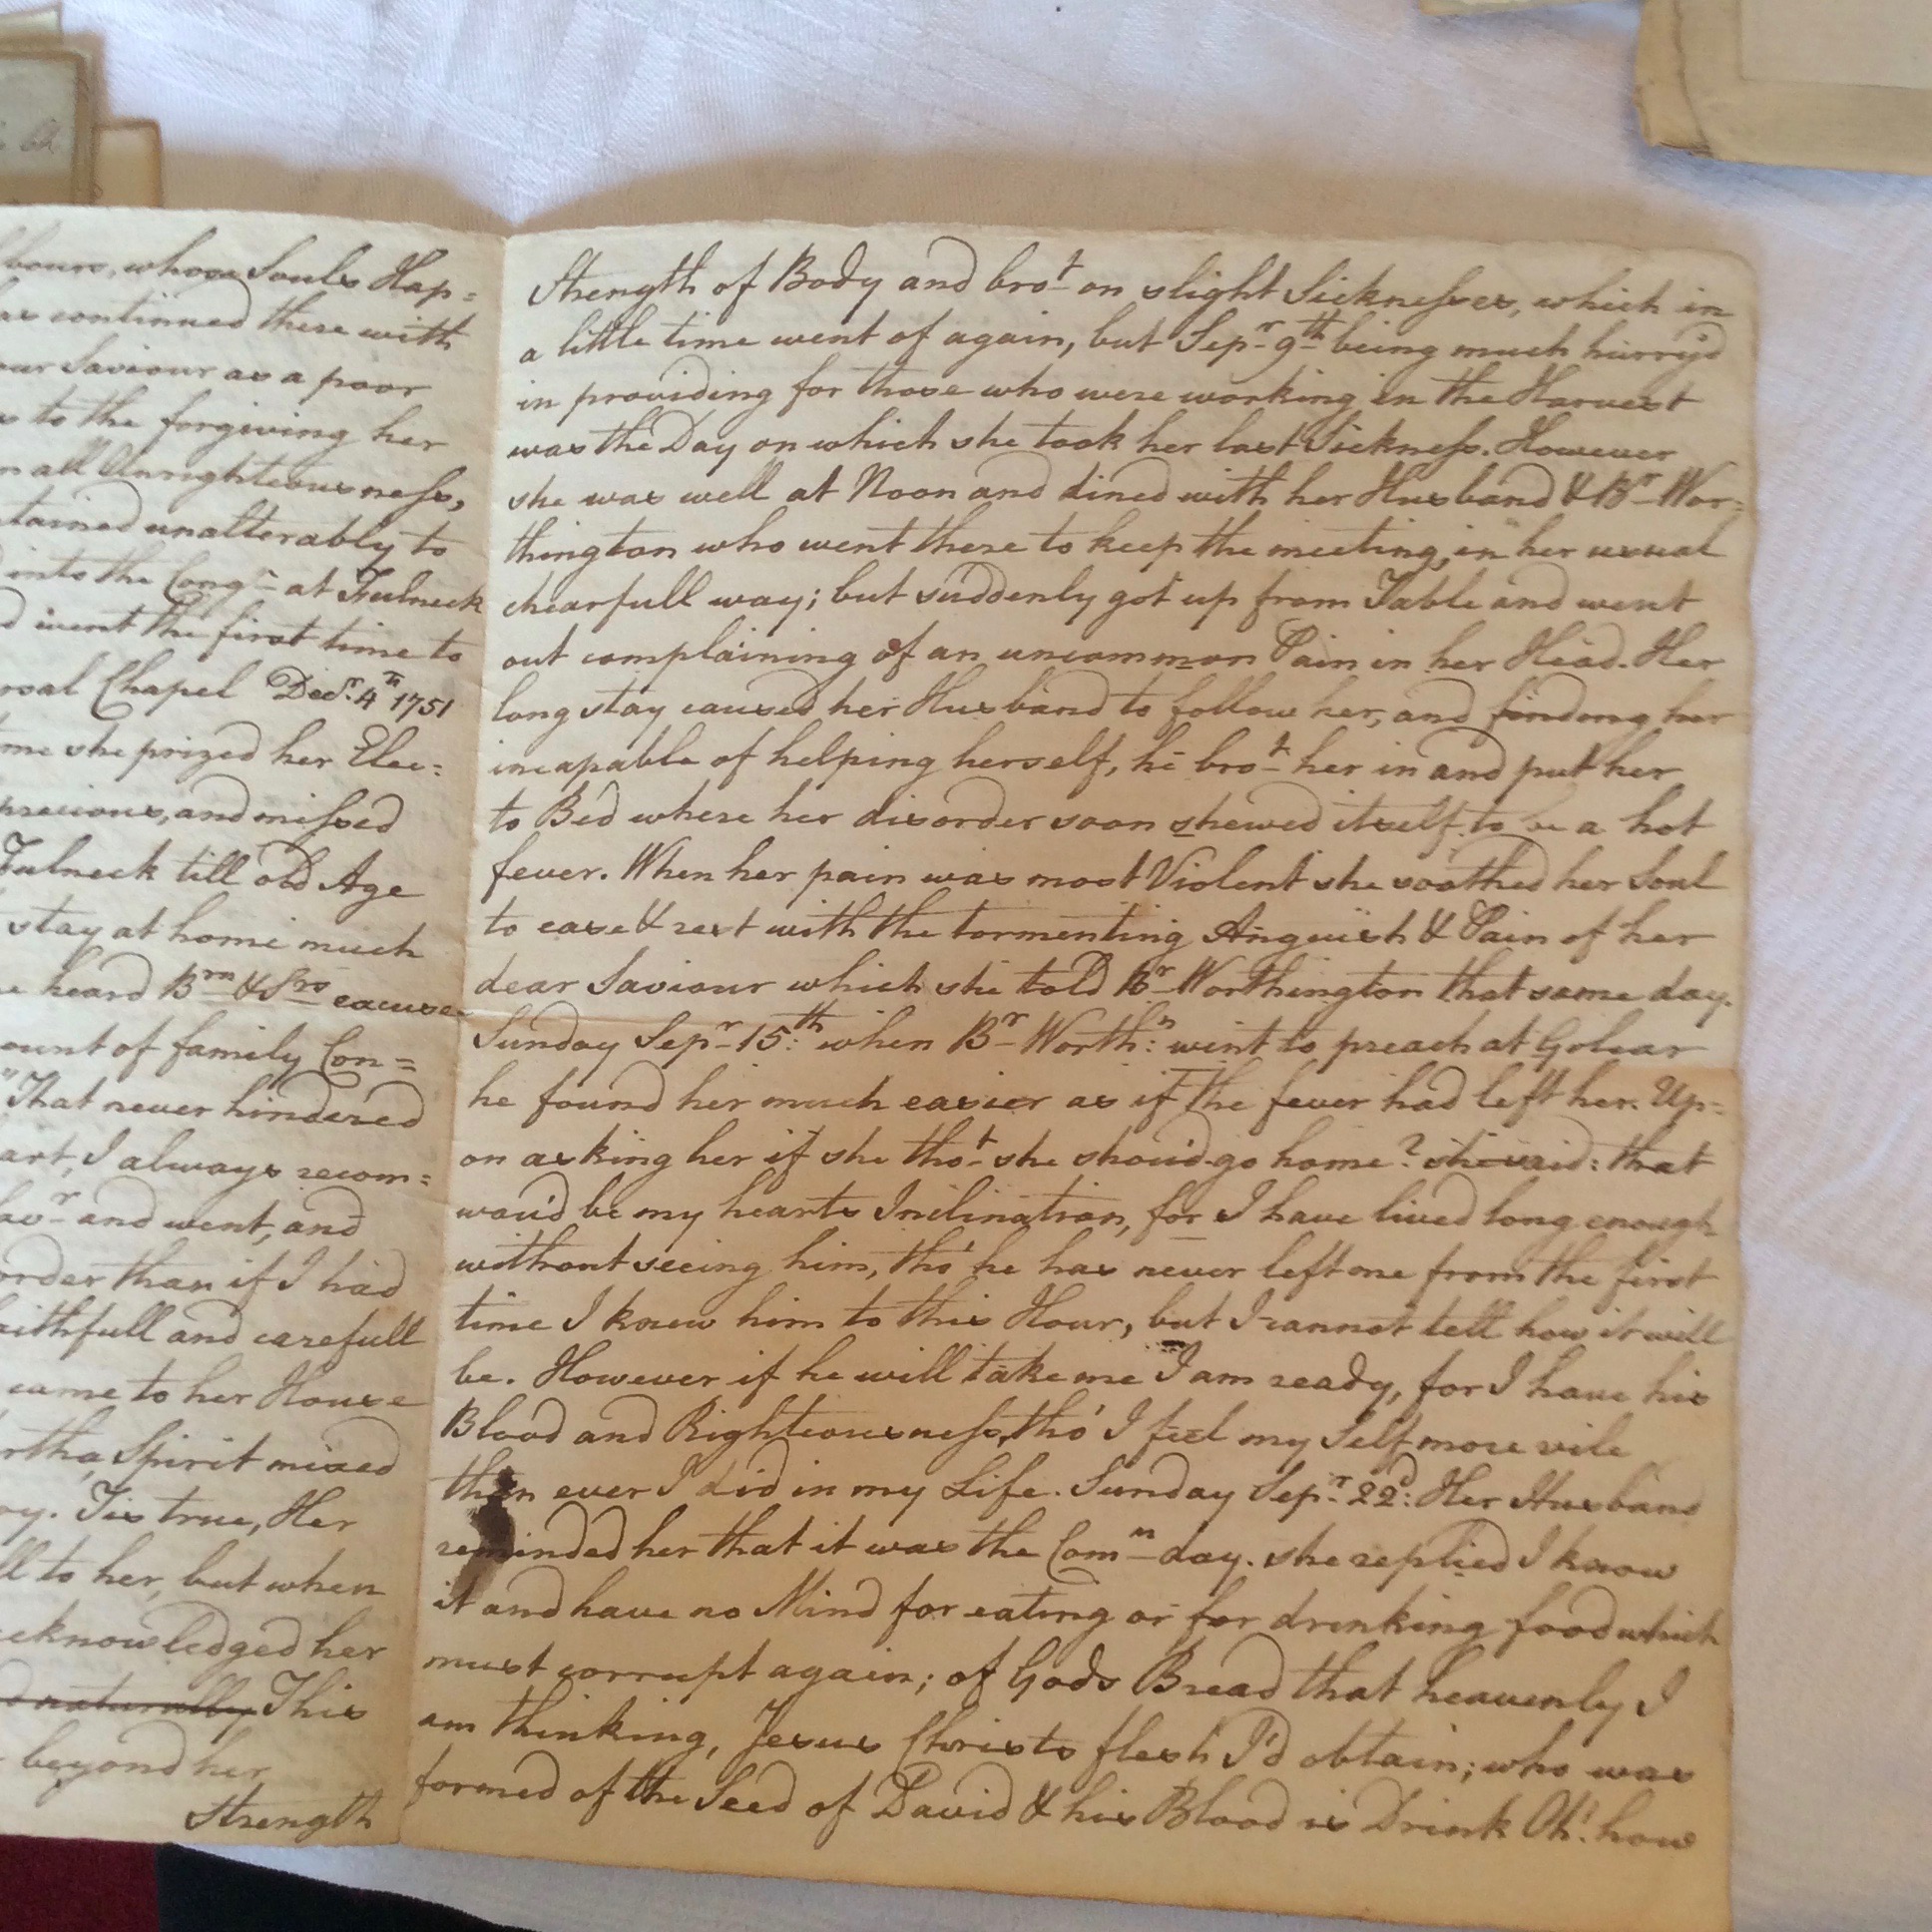 bours, whose Souls Hap=
as continued there with
our Saviour as a poor
to the forgiving her
all Unrighteousness,
tained unalterably to
into the Congn at Fulneck
went the first time to
rsal Chapel Decr. 4th 1751
me she prized her Elec=
precious, and missed
Fulneck till old Age
stay at home much
heard Brn & Srs excuse
ount of family Con=
"That never hindered
art, I always recom=
avr and went, and
order than if I had
aithfull and carefull
came to her House
rtha Spirit mixed
ry. Tis true, Her
ll to her, but when
cknowledged her
naturally This
beyond her
Strength
Strength of Body and brot on slight Sicknesses, which in
a little time went of again, but Sepr 9th being much hurry'd
in providing for those who were working in the Harvest
was the Day on which she took her last Sickness. However
she was well at Noon and dined with her Husband & Br Wor=
thington who went there to keep the meeting, in her usual
chearfull way; but suddenly got up from Table and went
out complaining of an uncommon Pain in her Head. Her
long stay caused her Husband to follow her, and finding her
incapable of helping herself, he brot her in and put her
to Bed where her disorder soon shewed itself to be a hot
fever. When her pain was most Violent she soothed her Soul
to ease & rest with the tormenting Anguish & Pain of her
dear Saviour which she told Br Worthington that same day.
Sunday Sepr 15:th when Br Worthn: went to preach at Golcar
he found her much easier as if the fever had left her. Up=
on asking her if she thot she shoud go home? she said: that
wou'd be my hearts Inclination, for I have lived long enough
without seeing him, tho' he has never left me from the first
time I knew him to this Hour, but I cannot tell how it will
be. However if he will take me I am ready, for I have his
Blood and Righteousness, tho' I feel my Self more vile
then ever I did in my Life. Sunday Sepr. 22d: Her Husband
reminded her that it was the Comn day. she replied I know
it and have no Mind for eating or for drinking food which
must corrupt again; of Gods Bread that heavenly I
am thinking, Jesus Christs flesh I'd obtain; who was
formed of the Seed of David & his Blood is Drink Oh! how